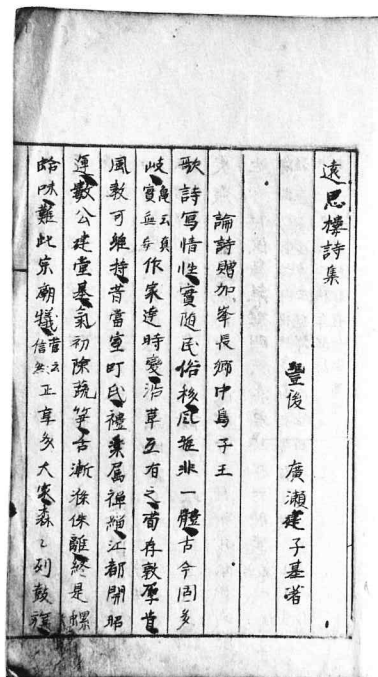 遠思樓詩集
豐後 廣瀨建子基著
論詩贈加峯長卿中島子玉
歌詩写情性實随民俗移風雅非一體古今固多
岐作家達時變沿革互有之苟存敦厚旨
風教可維持昔當室町氏禮樂属禅緇江都開昭
運數公建堂基氣初除蔬笋舌漸滌侏離終是螺
蛤味難比宗廟犠菅云信然正享多大家森々列鼓旗